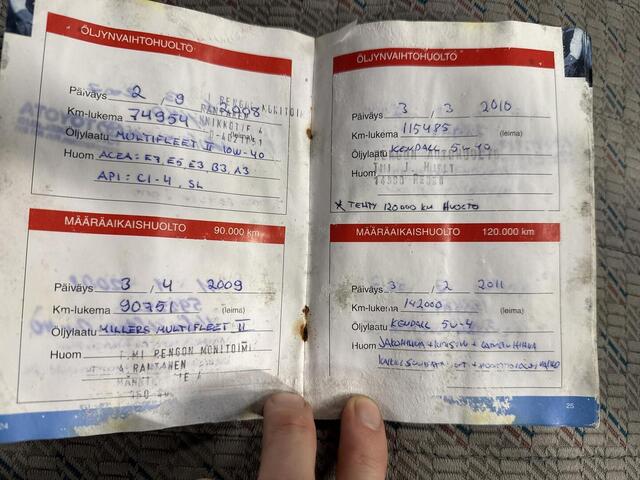 ÖLJYNVAIHTOHUOLTO
Päiväys 2 / 9 2008
Km-lukema 74954
Öljylaatu MULTIFLEET II 10W-40
Huom ACEA: E7, E5, E3, B3, A3
API: CI-4, SL
MÄÄRÄAIKAISHUOLTO 90.000 km
Päiväys 3 / 4 / 2009
Km-lukema 90751 (leima)
Öljylaatu MILLERS MULTIFLEET II
Huom T:MI PENGON MONITOIMI
A. RANTANEN
ÖLJYNVAIHTOHUOLTO
Päiväys 3 / 3 2010
Km-lukema 115485 (leima)
Öljylaatu KENDALL 5W-40
Huom
* TEHTY 120000 KM HUOLTO
MÄÄRÄAIKAISHUOLTO 120.000 km
Päiväys 3 / 2 2011
Km-lukema 142000 (leima)
Öljylaatu KENDALL 5W-4
Huom JAKOHIHNA + KIRISTIN +
25